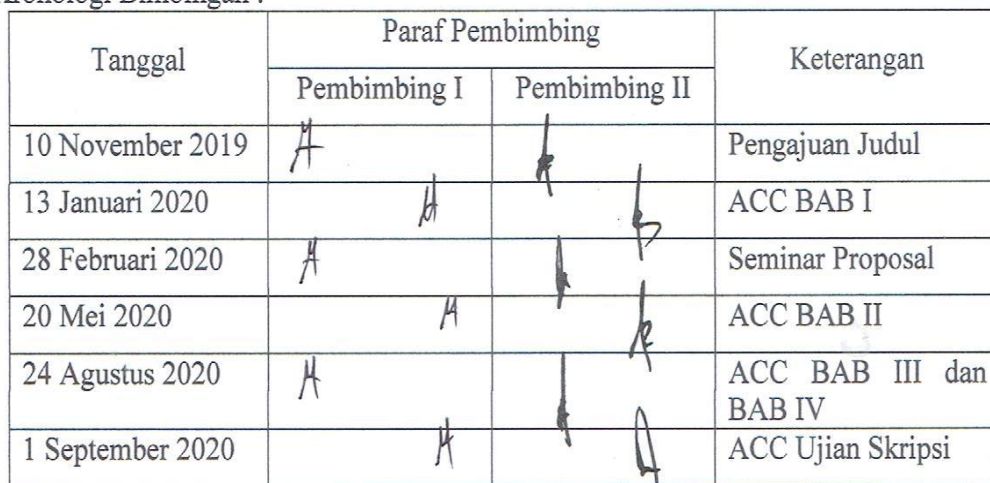 Tanggal
Paraf Pembimbing
Keterangan
Pembimbing I
Pembimbing II
10 November 2019
Pengajuan Judul
13 Januari 2020
ACC BAB I
28 Februari 2020
Seminar Proposal
20 Mei 2020
ACC BAB II
24 Agustus 2020
ACC BAB III dan
BAB IV
1 September 2020
ACC Ujian Skripsi